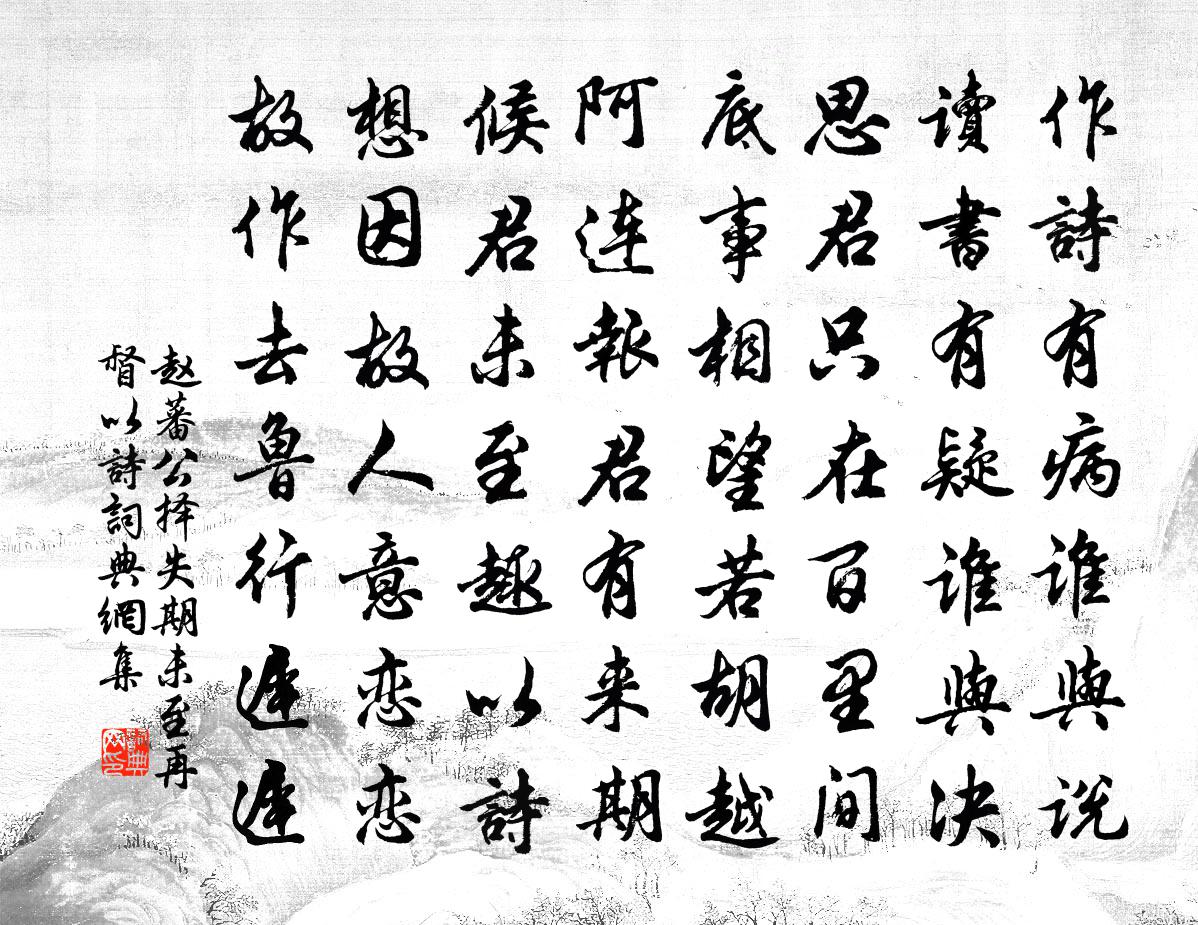 作詩有病谁與説
讀書有疑谁與决
思君只在百里间
底事相望若胡越
阿连報君有来期
候君未至趣以詩
想因故人意恋恋
故作去魯行遲遲
赵蕃公择失期未至再
督以詩詞典網集